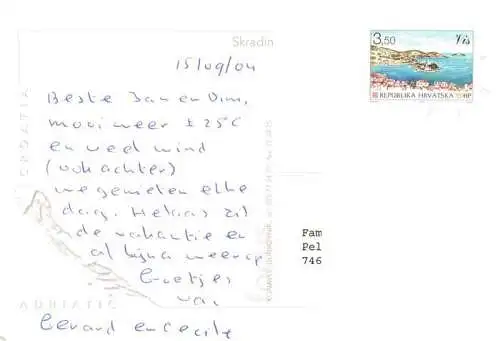 Skradin
15/09/04
3,50 Vis
REPUBLIKA HRVATSKA HP
Beste Jan en Wim,
mooi weer ± 25°C
en veel wind
(ook achter)
we genieten elke
dag. Helaas zit
de vakantie er
al bijna weer op
Groetjes
van
Gerard en Cecile
Fam
Pel
746
CROATIA
ADRIATIC